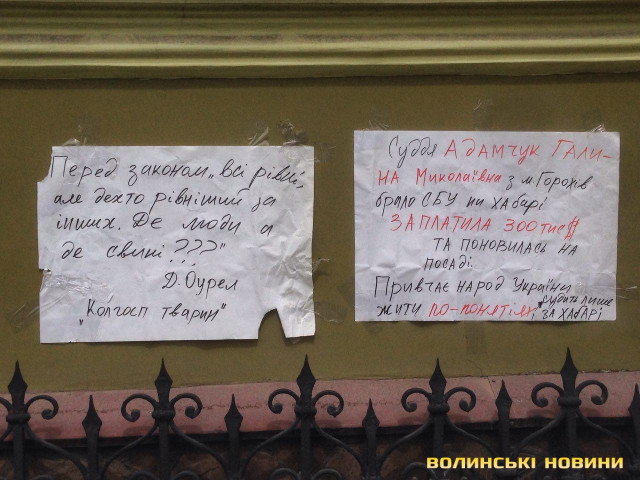 Перед законом „всі рівні,
але дехто рівніший за
інших. Де люди а
де свині???"
Д. Оурел
„Колгосп тварин"
Суддя АДАМЧУК ГАЛИ-
НА Миколаївна з м. Горохів
брала СБУ на хабарі
ЗАПЛАТИЛА 300 тис $
ТА ПОНОВИЛАСЬ НА
ПОСАДІ.
Привчає народ України
жити по-понятіях, судить лише
ЗА ХАБАРІ
ВОЛИНСЬКІ НОВИНИ